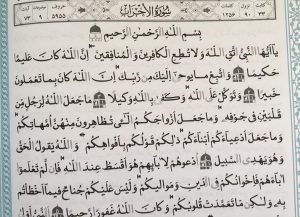 سورة الأحزاب
بِسْمِ اللَّهِ الرَّحْمٰنِ الرَّحِيمِ
يَا أَيُّهَا النَّبِيُّ اتَّقِ اللَّهَ وَلَا تُطِعِ الْكَافِرِينَ وَالْمُنَافِقِينَ إِنَّ اللَّهَ كَانَ عَلِيمًا
حَكِيمًا وَاتَّبِعْ مَا يُوحَىٰ إِلَيْكَ مِنْ رَبِّكَ إِنَّ اللَّهَ كَانَ بِمَا تَعْمَلُونَ
خَبِيرًا وَتَوَكَّلْ عَلَى اللَّهِ وَكَفَىٰ بِاللَّهِ وَكِيلًا مَا جَعَلَ اللَّهُ لِرَجُلٍ مِنْ
قَلْبَيْنِ فِي جَوْفِهِ وَمَا جَعَلَ أَزْوَاجَكُمُ اللَّائِي تُظَاهِرُونَ مِنْهُنَّ أُمَّهَاتِكُمْ
وَمَا جَعَلَ أَدْعِيَاءَكُمْ أَبْنَاءَكُمْ ذٰلِكُمْ قَوْلُكُمْ بِأَفْوَاهِكُمْ وَاللَّهُ يَقُولُ الْحَقَّ
وَهُوَ يَهْدِي السَّبِيلَ ادْعُوهُمْ لِآبَائِهِمْ هُوَ أَقْسَطُ عِنْدَ اللَّهِ فَإِنْ لَمْ تَعْلَمُوا
آبَاءَهُمْ فَإِخْوَانُكُمْ فِي الدِّينِ وَمَوَالِيكُمْ وَلَيْسَ عَلَيْكُمْ جُنَاحٌ فِيمَا أَخْطَأْتُمْ
بِهِ وَلٰكِنْ مَا تَعَمَّدَتْ قُلُوبُكُمْ وَكَانَ اللَّهُ غَفُورًا رَحِيمًا